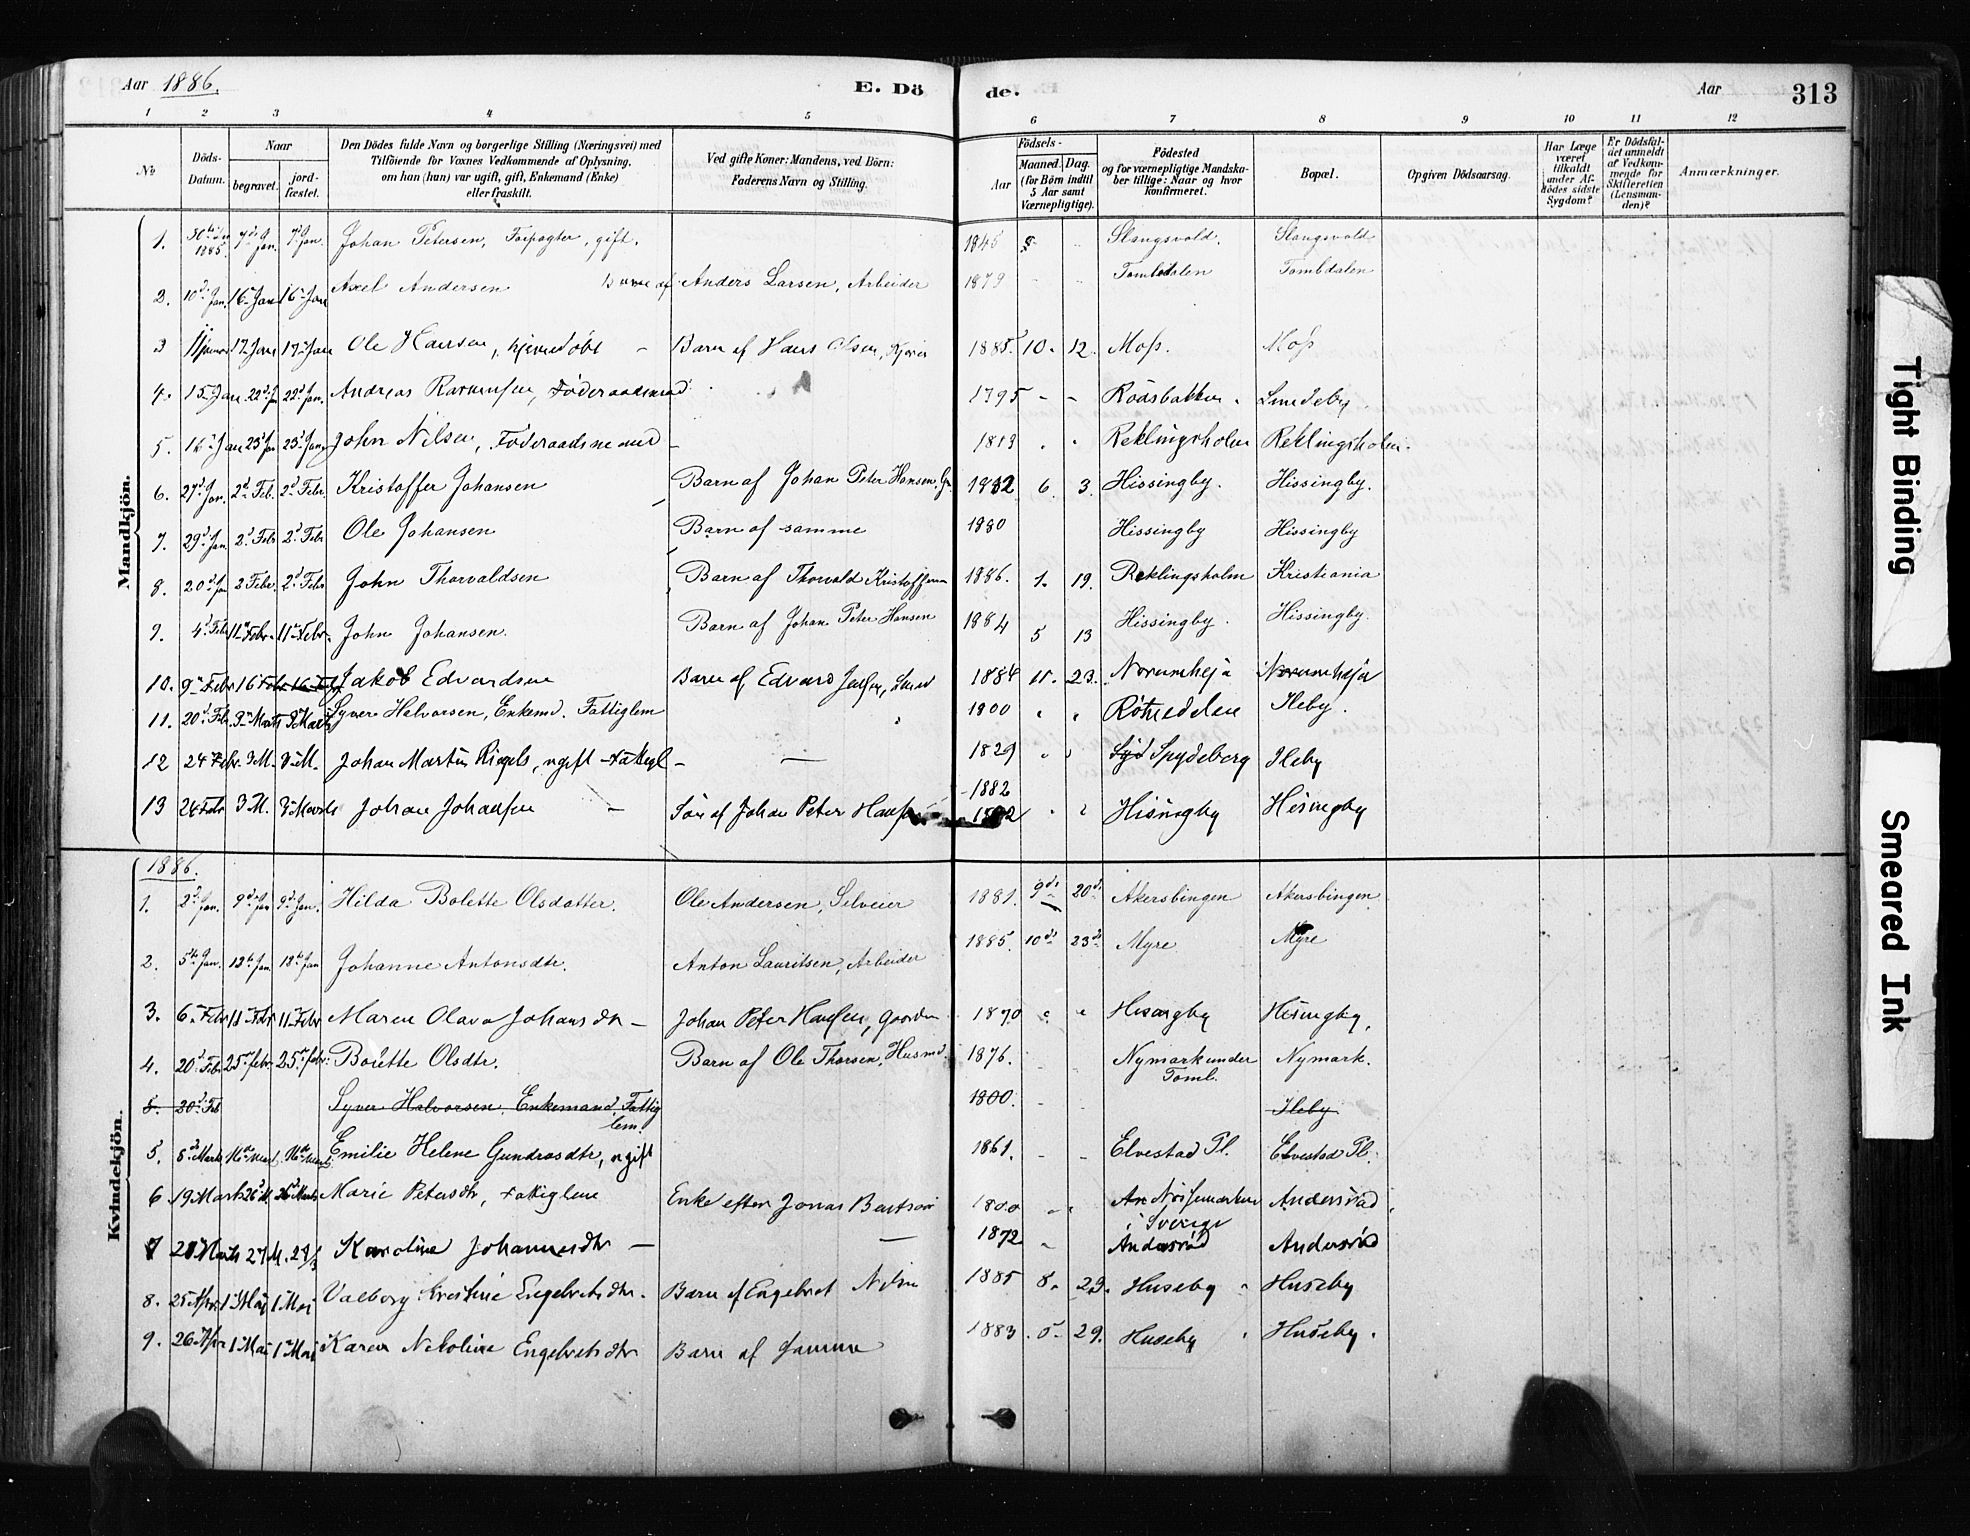 Aar 1886. E. Dö de. Aar 313
1 2 3 4 5 6 7 8 9 10 11 12
No
Döds-Datum.
Naar
begravet.
jord-fæstet.
Den Dödes fulde Navn og borgerlige Stilling (Næringsvei) med
Tilföiende for Voxnes Vedkommende af Oplysning,
om han (hun) var ugift, gift, Enkemand (Enke)
eller fraskilt.
Ved gifte Koner: Mandens, ved Börn:
Faderens Navn og Stilling.
Födsels-
Aar
Maaned. Dag.
(for Börn indtil
5 Aar samt
Værnepligtige).
Födested
og for værnepligtige Mandska-
ber tillige: Naar og hvor
konfirmeret.
Bopæl.
Opgiven Dödsaarsag.
Har Læge
været
tilkaldt
under Af-
dödes sidste
Sygdom?
Er Dödsfal-
det anmeldt
af Vedkom-
mende for
Skifteretten
(Lensman-
den)?
Anmærkninger.
Mandkjön.
1. 1885. 7d Jan. 7d Jan. Johan Petersen, gift. 1845 Slangsvold. Slangsvold
2. 10d Jan. 16 Jan 16 Jan Axel Andersen Barn af Anders Larsen, Arbeider 1879 Tombdalen Tombdalen
3 17 Jan 17 Jan Ole Hansen, hjemedøbt - Barn af Hans Olsen, 1885. 10. 12. Moss. Moss
4. 15 Jan 22d Ja 22d Jan. Andreas Rasmussen, Föderaadsmand 1795 - - Rödsbakken. Lundeby.
5. 16 Jan 23d Jan 23d Jan John Nilsen, Föderaadsmand - 1813 Reklingsholm Reklingsholm.
6. 27d Jan. 2d Feb. 2d Febr. Kristoffer Johansen Barn af Johan Peter Hansen, 1882 6. 3. Hissingby. Hissingby.
7. 29d Jan. 2d Febr 2d Febr Ole Johansen Barn af samme 1880 Hissingby Hissingby
8. 20d Ja 2 Febr. 2d Febr John Thorvaldsen Barn af Thorvald Kristoffersen 1886. 1. 19. Reklingsholm Kristiania
9. 4d Febr 11 Febr. 11 Febr. John Johansen. Barn af Johan Peter Hansen 1884 5 13 Hissingby. Hissingby.
10. 9 Febr 16 Febr 16 Febr Jakob Edvardsen Barn af Edvard 1884 11. 23. Norumheja Norumheja
11. 20d Feb. 3 Marts 3 Marts Syver Halvorsen, Enkemd. Fattiglem 1800 Ileby.
12 24 Febr. 3 M. 3 M. Johan Martin Rigels, ugift - Fattigl - 1829 Syd Spydeberg Ileby
13 24 Febr 3 M. 3 Marts Johan Johansen - Sön af Johan Peter Hansen 1882 1882 Hisingby Hisingby
Kvindekjön.
1886.
1. 2d Jan. 9d Jan 9d Jan. Hilda Bolette Olsdatter. Ole Andersen, Selveier 1881. 9de 20d. Akersbingen Akersbingen
2. 5te Jan. 13te Jan. 13te Jan Johanne Antonsdtr. Anton Lauritsen, Arbeider 1885. 10de 23de Myre Myre
3. 6 Febr 11 Febr 11 Febr Maren Olava Johansdtr - Johan Peter Hansen, Gaardm 1870 Hisingby Hisingby,
4. 20d Feb 25 febr. 25 febr. Bolette Olsdtr. Barn af Ole Thorsen, Husmd. 1876. Nymark under Tomb. Nymark.
5. 20d Feb Syver Halvorsen, Enkemand, Fattiglem. 1800. Ileby
5. 8d Marts 16de Mart. 16de Marts Emilie Helene Gundrosdtr, ugift 1861. - - Elvestad Pl. Elvestad Pl.
6 19 Marts 26 M. 26 Marts Marie Petersdtr, Fattiglem Enke efter Jonas Bentson 1800 An Nössemarken i Sverige Andersröd
7 Marts 27 M. 27/3 Karoline Johannesdtr - - 1872 Andersröd Andersröd
8. 25 Apr. 1 Maj 1 Maj Valborg Kristine Engebretsdtr. Barn af Engebret Nilsen 1885 8. 23. Huseby Huseby
9. 26 Apr 1 Mai 1 Maj Karen Nikoline Engebretsdtr Barn af samme 1883. 5 29. Huseby Huseby.
Tight Binding
Smeared Ink